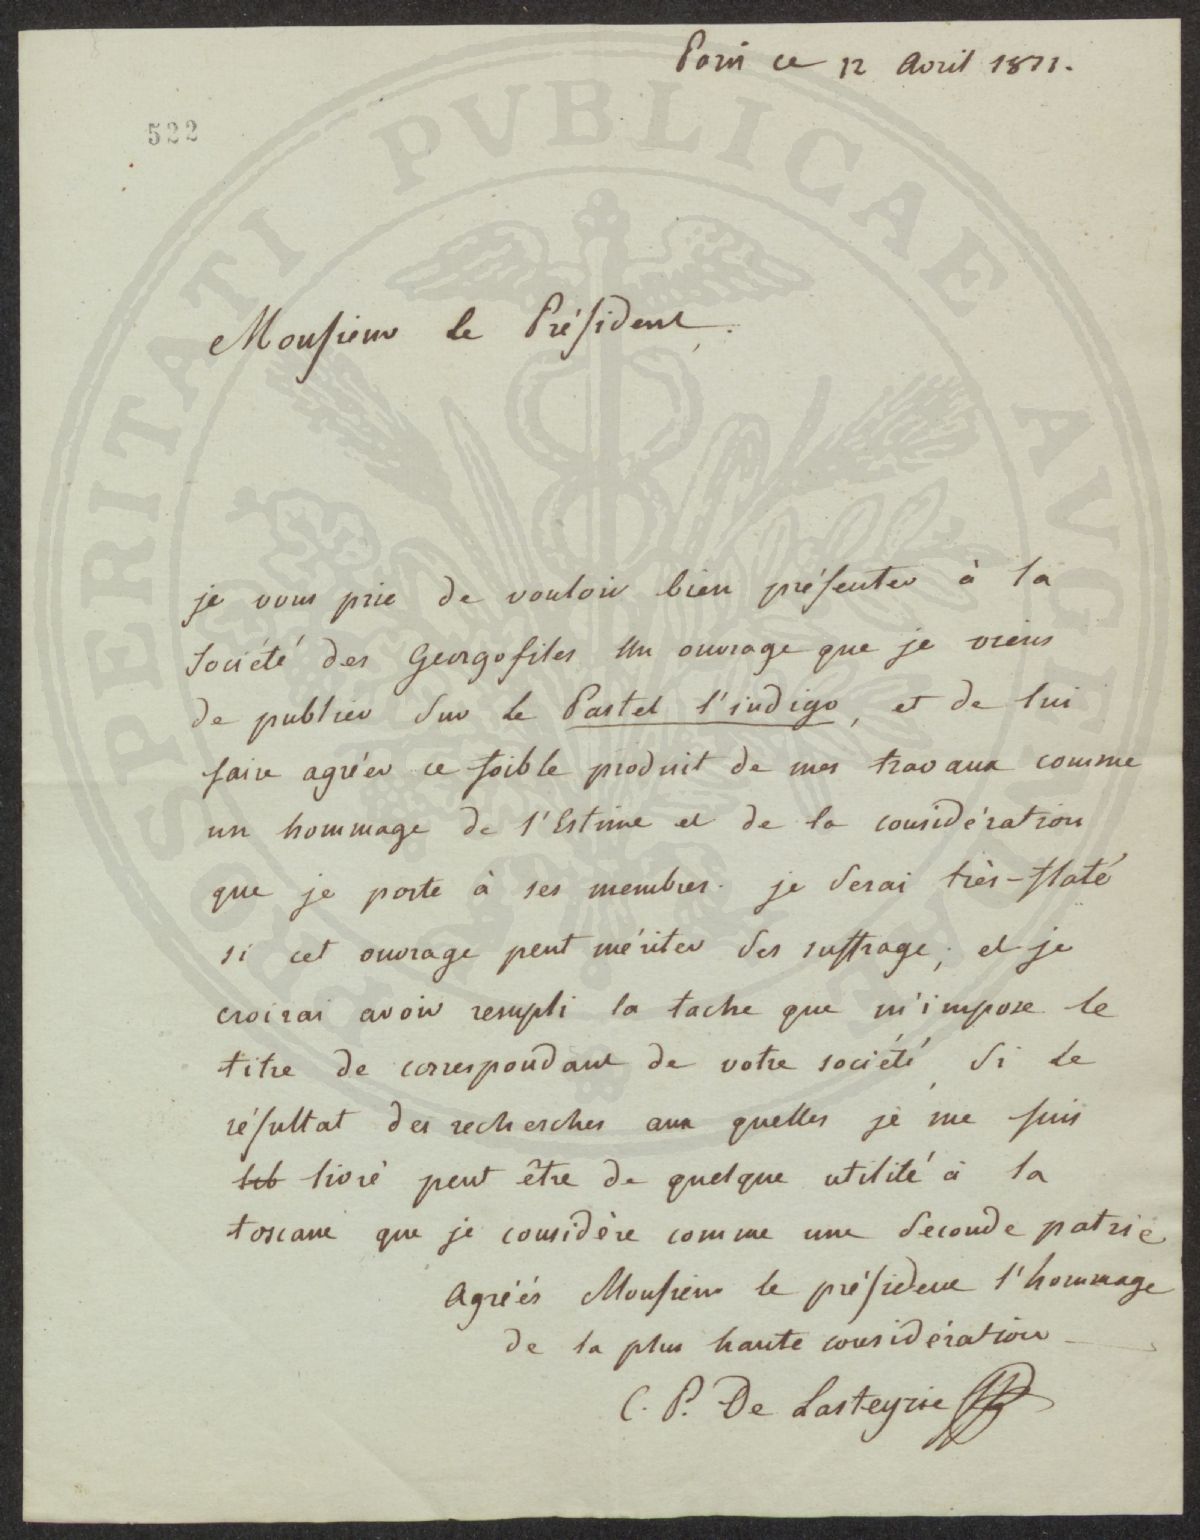 Paris ce 12 Avril 1811.
522
Monsieur le Président.
je vous prie de vouloir bien présenter à la
Société des Georgofiles un ouvrage que je viens
de publier sur le Pastel l'indigo, et de lui
faire agréer ce foible produit de mes travaux comme
un hommage de l'Estime et de la considération
que je porte à ses membres. je serai très-flaté
si cet ouvrage peut mériter ses suffrage; et je
croirai avoir rempli la tache que m'impose le
titre de correspondant de votre société, si le
résultat des recherches aux quelles je me suis
livré peut être de quelque utilité à la
toscane que je considère comme une seconde patrie
Agréés Monsieur le président l'hommage
de la plus haute considération
C. P. De Lasteyrie
PROSPERITATI PVBLICAE AVGENDAE